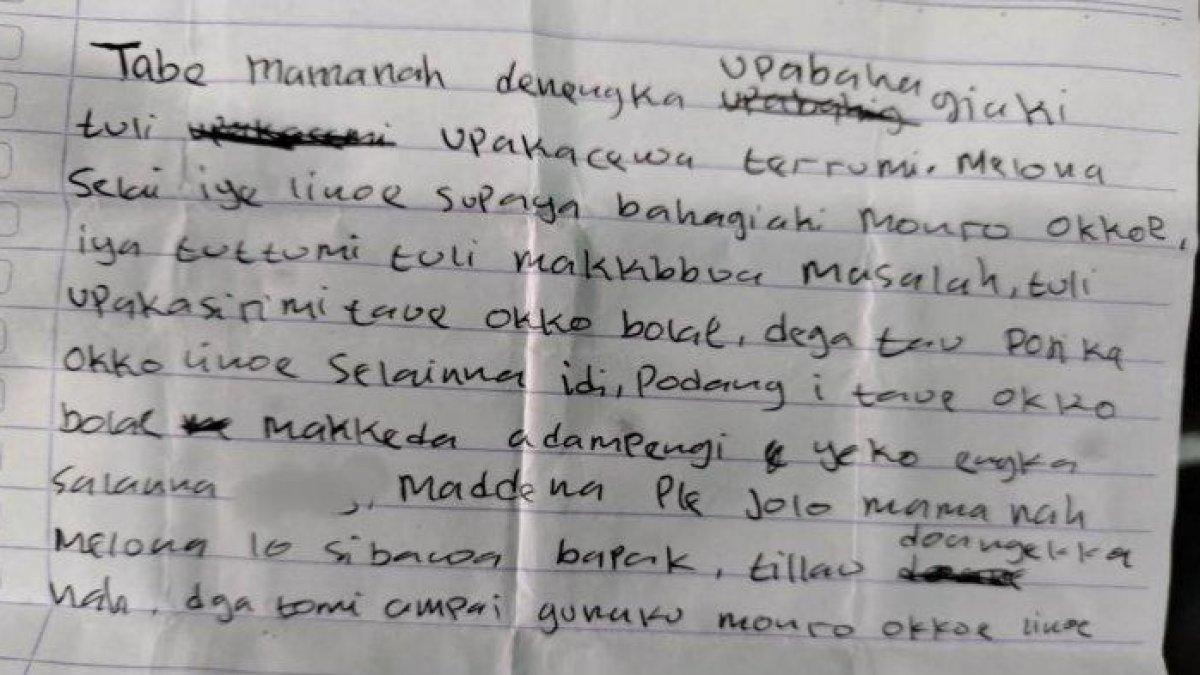 Tabe mamanah denengka upabaha giaki
tuli upakacewa terrumi. Melona
Selai iye linoe supaya bahagiaki monro okkoe,
iya tuttumi tuli makkbbua masalah, tuli
upakasirimi taue okko bolae, dega tau Pon ka
okko linoe selainna idi, Podang i taue okko
bolae makkeda adampengi yeko engka
salanna ,, Maddena Ple Jolo mama nah
Melona lo sibawa bapak, tillau doangekka
nah, dga tomi ampai gunaku monro okkoe linoe